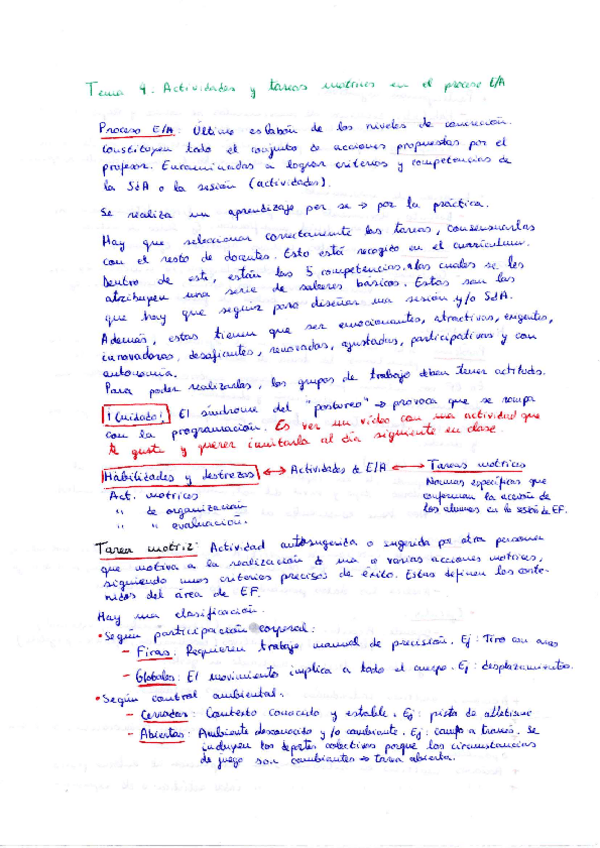 Tema 9. Actividades y tareas motrices en el proceso E/A
Proceso E/A: Último eslabón de los niveles de concreción.
Constituyen todo el conjunto de acciones propuestas por el
profesor. Encaminadas a lograr criterios y competencias de
la SdA o la sesión (actividades).
Se realiza un aprendizaje per se → por la práctica.
Hay que seleccionar correctamente las tareas, consensuarlas
con el resto de docentes. Esto está recogido en el currículum.
Dentro de este, están las 5 competencias, a las cuales se les
atribuyen una serie de saberes básicos. Estas son las
que hay que seguir para diseñar una sesión y/o SdA.
Además, estas tienen que ser emocionantes, atractivas, exigentes,
innovadoras, desafiantes, renovadas, ajustadas, participativas y con
autonomía.
Para poder realizarlas, los grupos de trabajo deben tener actitud.
¡Cuidado! El síndrome del "postureo" → provoca que se rompa
con la programación. Es ver un vídeo con una actividad que
te guste y querer imitarla al día siguiente en clase.
Habilidades y destrezas ↔ Actividades de E/A ↔ Tareas motrices
Act. motrices Normas específicas que
" de organización conforman la acción de
" " evaluación. los alumnos en la sesión de EF.
Tarea motriz: Actividad autosugerida o sugerida por otra persona
que motiva a la realización de una o varias acciones motrices,
siguiendo unos criterios precisos de éxito. Estas definen los conte-
nidos del área de EF.
Hay una clasificación.
• Según participación corporal:
– Finas: Requieren trabajo manual de precisión. Ej: Tiro con arco
– Globales: El movimiento implica a todo el cuerpo. Ej: desplazamientos.
• Según control ambiental:
– Cerradas: Contexto conocido y estable. Ej: pista de atletismo
– Abiertas: Ambiente desconocido y/o cambiante. Ej: campo a través. Se
incluyen los deportes colectivos porque las circunstancias
de juego son cambiantes → tarea abierta.